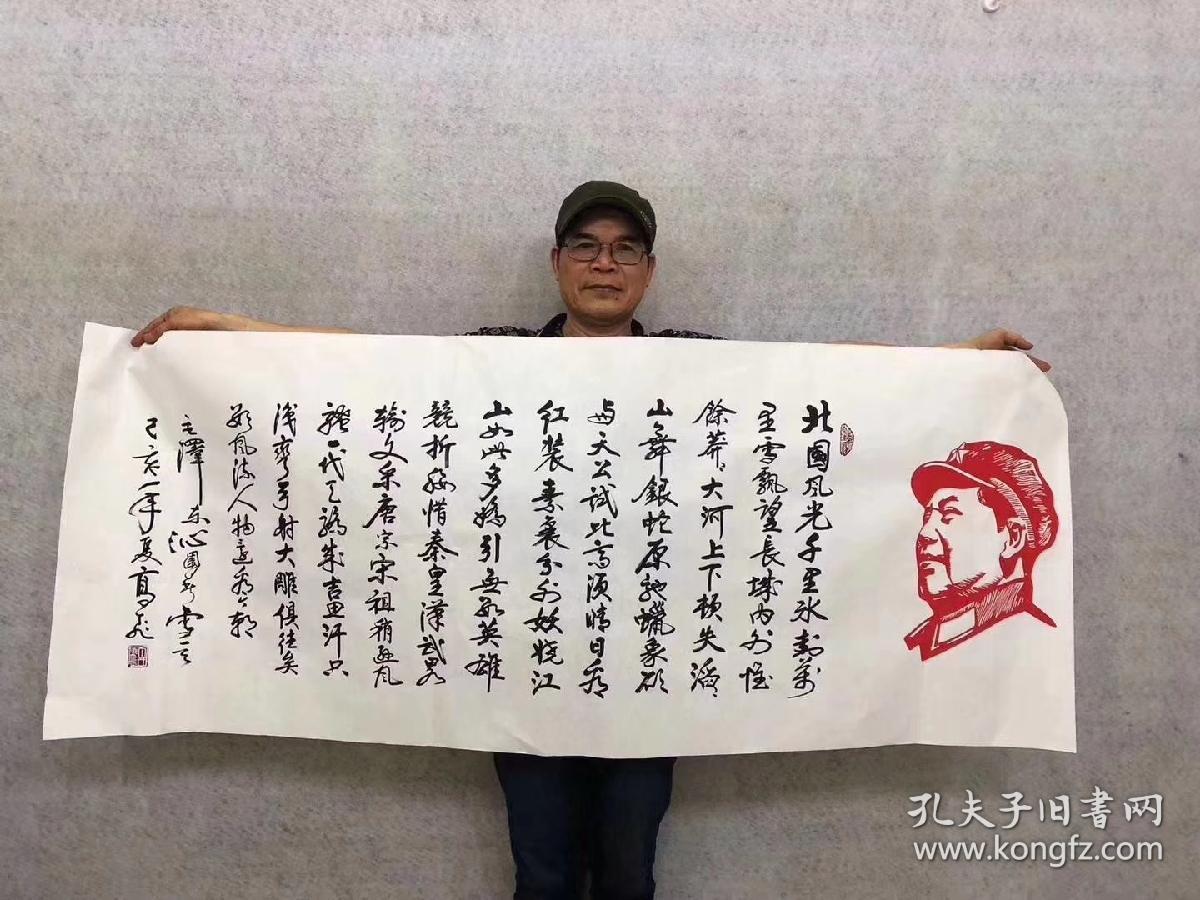 北國风光千里冰封萬
里雪飘望長城内外惟
餘莽莽大河上下顿失滔滔
山舞銀蛇原馳蠟象欲
与天公試比高须晴日看
红装素裹分外妖娆江
山如此多嬌引無数英雄
競折腰惜秦皇漢武略
输文采唐宗宋祖稍遜风
骚一代天骄成吉思汗只
识彎弓射大雕俱往矣
数风流人物還看今朝
毛澤东沁園春雪
己亥年夏高飞
孔夫子旧书网
www.kongfz.com